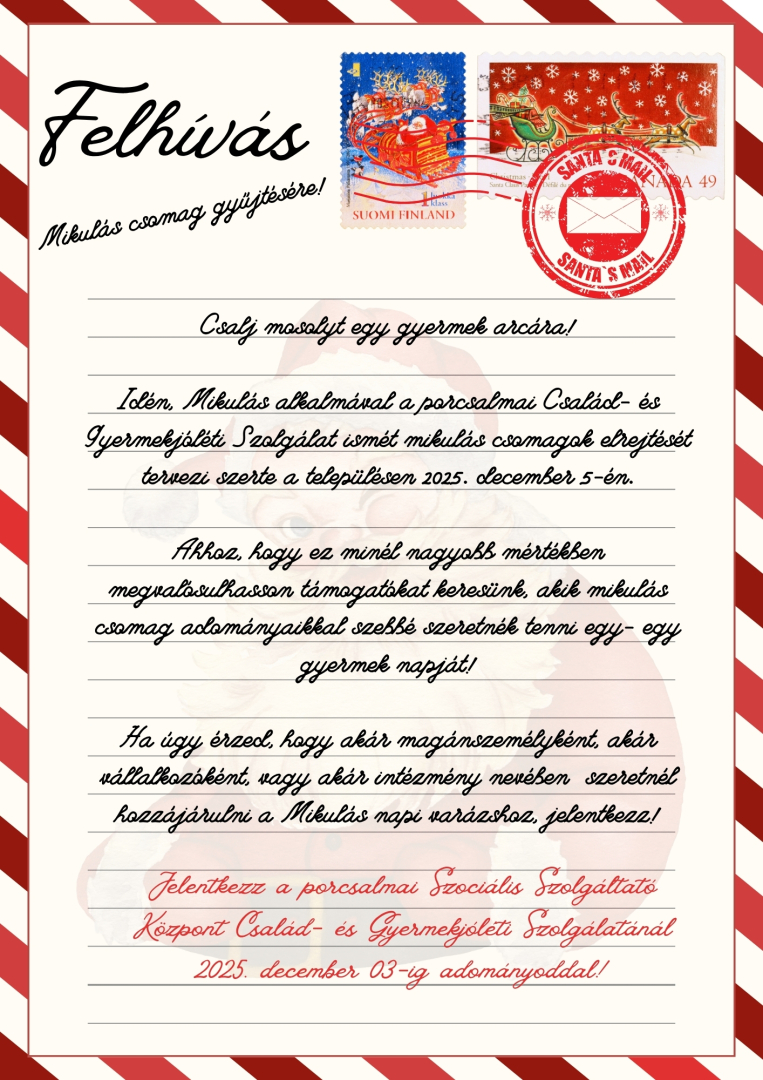 Felhívás
Mikulás csomag gyűjtésére!
SUOMI FINLAND
klass
Christmas
NADA 49
SANTA`S MAIL
SANTA`S MAIL
Csalj mosolyt egy gyermek arcára!
Idén, Mikulás alkalmával a porcsalmai Család- és
Gyermekjóléti Szolgálat ismét mikulás csomagok elrejtését
tervezi szerte a településen 2025. december 5-én.
Ahhoz, hogy ez minél nagyobb mértékben
megvalósulhasson támogatókat keresünk, akik mikulás
csomag adományaikkal szebbé szeretnék tenni egy- egy
gyermek napját!
Ha úgy érzed, hogy akár magánszemélyként, akár
vállalkozóként, vagy akár intézmény nevében szeretnél
hozzájárulni a Mikulás napi varázshoz, jelentkezz!
Jelentkezz a porcsalmai Szociális Szolgáltató
Központ Család- és Gyermekjóléti Szolgálatánál
2025. december 03-ig adományoddal!